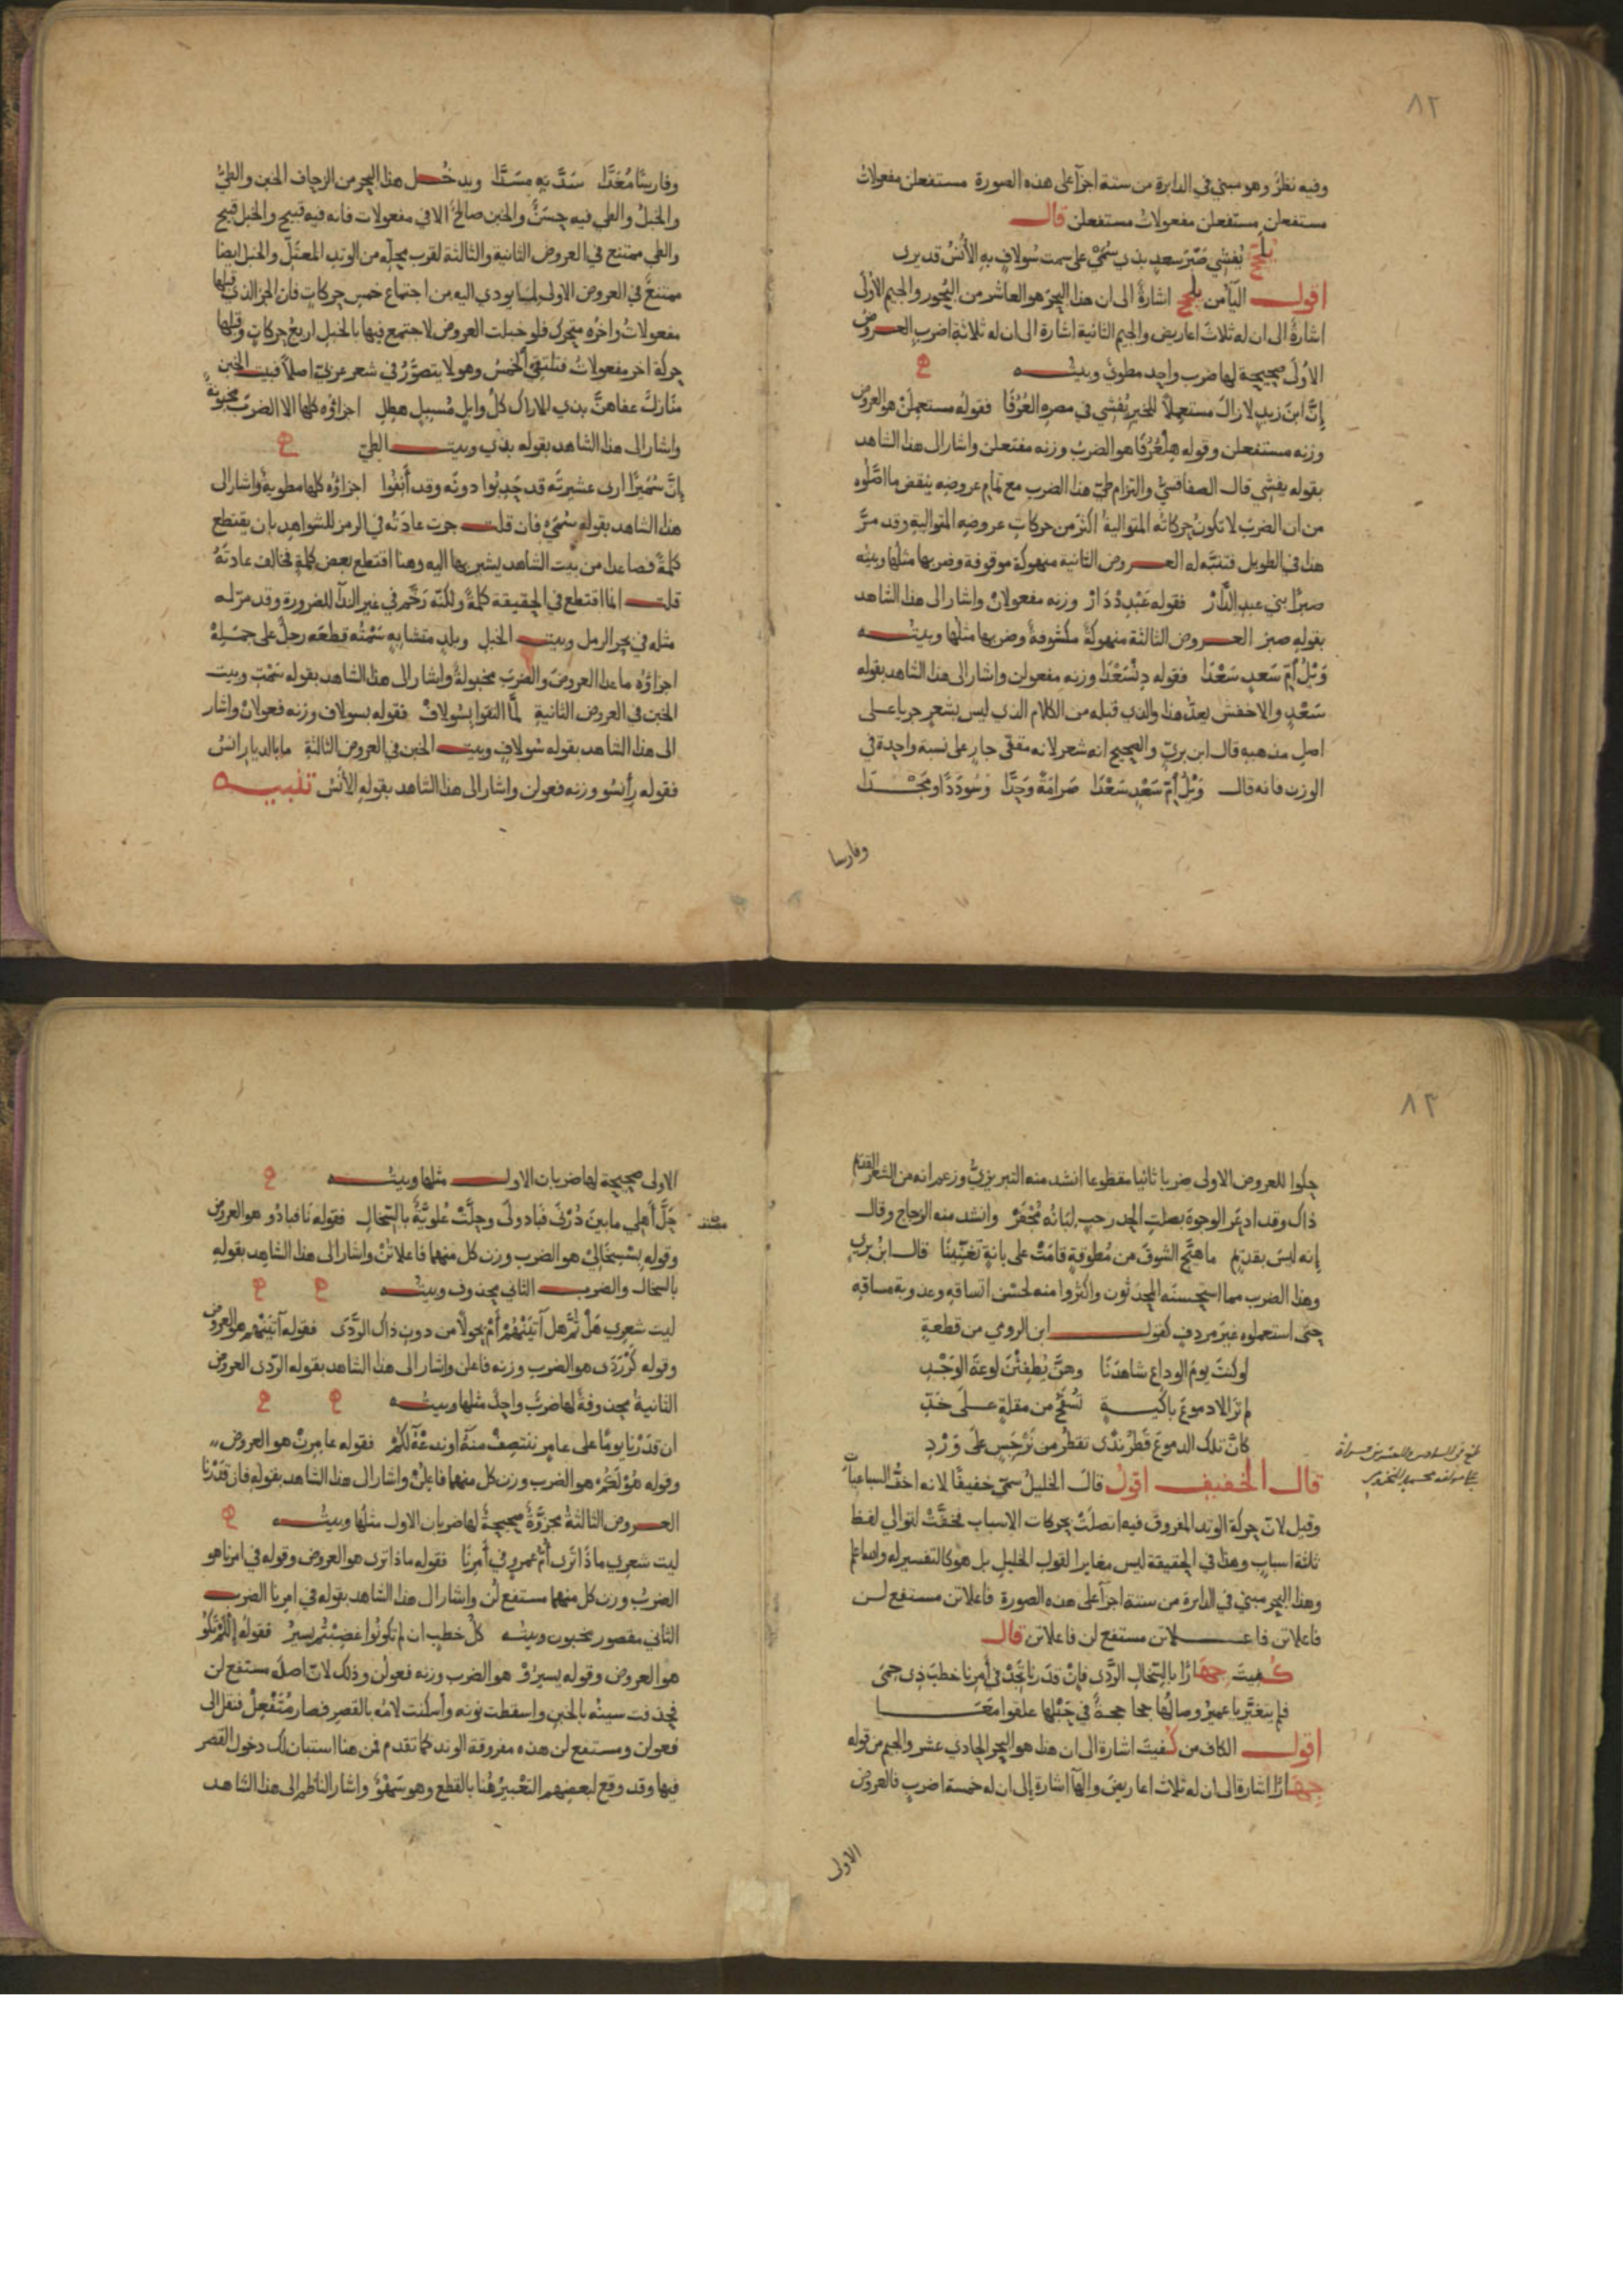 ٨٢
وفيه نظرٌ وهو مبني في الدايرة من ستة اجزآ على هذه الصورة مستفعلن مفعولاتُ
مستفعلن مستفعلن مفعولاتُ مستفعلن قال
يلجج يُفشي صَبْرَ سعدٍ بذي سُمَيٍّ على سمت سُولافٍ بهِ الأُنْسُ قد يرى
اقول اليآ من يلجج اشارةٌ الى ان هذا البحرَ هو العاشر من البُحور والجيم الأولى
اشارةٌ الى ان له ثلاثَ اعاريض والجيم الثانية اشارة الى ان له ثلاثة اضرب العروض
الاولى صحيحة لها ضرب واحد مطويٌّ وبيتُه
إنَّ ابنَ زيدٍ لا زالَ مستعملاً للخيرِ يُفشي في مصرِهِ العُرُفَا فقولُه مستعملنْ هو العروض
وزنه مستفعلن وقوله هِلْعُرُفَا هو الضربُ وزنه مفتعلن واشار الى هذا الشاهد
بقوله يفشي قال الصفاقسيُّ والتزام طيّ هذا الضرب مع تمام عروضِه ينقض ما اصَّلوه
من ان الضربَ لا تكونُ حركاتُه المتواليةُ اكثرَ من حركاتِ عروضِه المتواليةِ وقد مرَّ
هذا في الطويل فتنبَّه له العروض الثانية منهوكة موقوفة وضربها مثلُها وبيتُه
صبرًا بني عبدِ الدَّارْ فقوله عَبْدِدْدَارْ وزنه مفعولانْ واشار الى هذا الشاهد
بقوله صبرَ العروض الثالثة منهوكةٌ مكشوفةٌ وضربها مثلُها وبيتُه
وَيْلُ أمِّ سَعدٍ سَعْدَا فقوله دِنْسَعْدَا وزنه مفعولن واشار الى هذا الشاهد بقوله
سَعْدٍ والاخفش يعدُّ هذا والذي قبله من الكلام الذي ليس بشعرٍ جريا على
اصلِ مذهبه قال ابن بريّ والصحيح انه شعر لانه مقفى جارٍ على نسبة واحدة في
الوزن فانه قال وَيْلُ أمِّ سَعْدٍ سَعْدَا صَرَامَةً وَجِدَّا وَسُودَدًا ومَجْدَا
وفارسا
وفارسًا مُعَدَّا سَدَّ بهِ مسَدَّا ويدخُل هذا البحر من الزحاف الخبن والطيّ
والخبلُ والطي فيه حَسَنٌ والخبن صالحٌ الا في مفعولات فانه فيه قبيح والخبل قبيح
والطي ممتنع في العروض الثانية والثالثة لقرب محلّه من الوتد المعتلّ والخبل ايضا
ممتنعٌ في العروض الاولى لما يودي اليه من اجتماع خمس حركاتٍ فان الجز الذي قبلها
مفعولاتُ واخرُه متحرك فلو خبلت العروض لاجتمع فيها بالخبل اربعُ حركاتٍ وقبلها
حركة اخر مفعولاتُ فتلتقي الخمسُ وهو لا يتصوَّرُ في شعر عربيّ اصلاً فبيت الخبن
منَازلٌ عفاهنَّ بذي الاراك كلُّ وابلٍ مُسبلٍ هطلِ اجزاؤه كلها الا الضربَ مخبونة
واشار الى هذا الشاهد بقوله بذي وبيت الطيّ
إنَّ سُمَيرًا ارى عشيرتَه قد حَدِبُوا دونَه وقد أَنِفُوا اجزاؤه كلها مطويةٌ واشار الى
هذا الشاهد بقوله سُمَيٍّ فان قلت جرت عادتُه في الرمز للشواهد بان يقتطع
كلمةً فصاعدا من بيت الشاهد يشير بها اليه وهنا اقتطع بعض كلمةٍ فخالف عادتَهُ
قلت انما اقتطع في الحقيقة كلمةً ولكنّه رَخَّمَ في غير الندآ للضرورة وقد مرّ له
مثله في بحر الرمل وبيت الخبل وبلدٍ متشابهٍ سَمْتُه قطعَه رجلٌ على جمَلِهْ
اجزاؤه ما عدا العروضَ والضربَ مخبولةٌ واشار الى هذا الشاهد بقوله سَمْتِ وبيت
الخبن في العروض الثانية لمَّا التقوا بِسُولافْ فقوله بسولاف وزنه فعولانْ واشار
الى هذا الشاهد بقوله سُولافٍ وبيت الخبن في العروض الثالثة ما بالديارِ انسُ
فقوله رِأُنسُو وزنه فعولن واشار الى هذا الشاهد بقولهِ الأُنْسُ تنبيه
٨٣
حكوا للعروض الاولى ضربا ثانيا مقطوعا انشد منه التبريزيُّ وزعم انه من الشعر القديم
ذاك وقد اذعَر الوحوشَ بصلتِ الخد رحبٍ لبَانُه مُجْفَرْ وانشد منه الزجاج وقال
إنه ليسَ بقديم ما هيَّج الشوقَ من مُطوقةٍ قامَتْ على بانةٍ تغنّينَا قال ابنُ بريٍ
وهذا الضرب مما استحسنَه المحدَثون واكثروا منه لحسْن اتساقهِ وعذوبة مساقهِ
حتى استعملوه غيرَ مردفٍ كقول ابن الرومي من قطعةٍ
لو كنتَ يومَ الوداع شاهدَنَا وهنَّ يُطفِئْنَ لوعةَ الوَجْدِ
لم ترَ الا دموعَ باكيةٍ تُسْفَحُ من مقلةٍ على خَدّ
كانَّ تلك الدموعَ قَطْرُ نَدًى تقطرُ من نَرْجَسٍ على وَرْدِ
قال الخفيف اقولُ قالَ الخليلُ سمّي خفيفًا لانه اخفُّ السباعيات
وقيل لانّ حركةَ الوتد المفروقَ فيه اتصلَتْ بحركات الاسباب فخفَّتْ لتوالي لفظ
ثلاثة اسبابٍ وهذا في الحقيقة ليس مغايرا لقول الخليل بل هو كالتفسير له والله اعلم
وهذا البحر مبني في الدايرة من ستة اجزآ على هذه الصورة فاعلاتن مستفع لن
فاعلاتن فاعلاتن مستفع لن فاعلاتن قال
كفيتَ جهَارًا بالسِّخالِ الرَّدَى فإنْ قدَرنَا نَجِدْ في أمرِنا خطبَ ذي حمَى
فلم يتغيَّر يا عميرُ وصالُها جحا جحةٌ في حَبْلِها علقوا معَا
اقول الكاف من كفيتَ اشارة الى ان هذا هو البحر الحادي عشر والجيم من قوله
جهَارًا اشارة الى ان له ثلاث اعاريضَ والهآ اشارة الى ان له خمسة اضربٍ فالعروض
الاولى
الاولى صحيحة لها ضربان الاول مثلها وبيتُه
حَلَّ أهلي ما بينَ دُرْنَى فبَادَولَى وحلَّتْ عُلويَّةٌ بالسّخالِ فقوله نَا فبادُو هو العروض
وقوله بِسْسِخَالِيْ هو الضرب وزن كل منهما فاعلاتنْ واشار الى هذا الشاهد بقوله
بالسخال والضرب الثاني محذوف وبيتُه
ليت شعري هَلْ ثُمَّ هل آتينْهُمْ أمْ يحولًا من دونِ ذاك الرَّدَى فقوله آتينهم هو العروض
وقوله كَرْرَدَى هو الضرب وزنه فاعلن واشار الى هذا الشاهد بقوله الرّدى العروض
الثانيةُ محذوفةٌ لها ضربٌ واحدٌ مثلها وبيتُه
ان قدَرْنَا يومًا على عامرٍ ننتصِفْ منهُ أو ندعْهُ لكُمْ فقوله عامرِنْ هو العروض
وقوله هُوْ لكُمْ هو الضرب وزن كل منهما فاعلنْ واشار الى هذا الشاهد بقوله فان قدَرْنا
العروض الثالثةُ مجزوَّةٌ صحيحةٌ لها ضربان الاول مثلُها وبيتُه
ليت شعري ماذَا تَرَى أمُّ عمرٍو في أمرِنَا فقوله ماذا ترى هو العروض وقوله في امرنا هو
الضربُ وزن كل منهما مستفع لُن واشار الى هذا الشاهد بقوله في امرِنا الضرب
الثاني مقصور مخبون وبيتُه كلُّ خطبٍ ان لم تكونُوا غضِبْتُمْ يسيرُ فقوله
هو العروض وقوله يسيرُوْ هو الضرب وزنه فعولن وذلك لانّ اصلَه مستفع لن
فحذفت سينُه بالخبنِ واسقطت نونه وأسكنت لامُه بالقصرِ فصار مُتَفْعِلْ فنقل الى
فعولن ومستفع لن هذه مفروقة الوتد كما تقدم فمن هنا استبان لك دخول القصر
فيها وقد وقع لبعضهم التعْبيرُ هُنا بالقطع وهو سَهْوٌ واشار الناظم الى هذا الشاهد